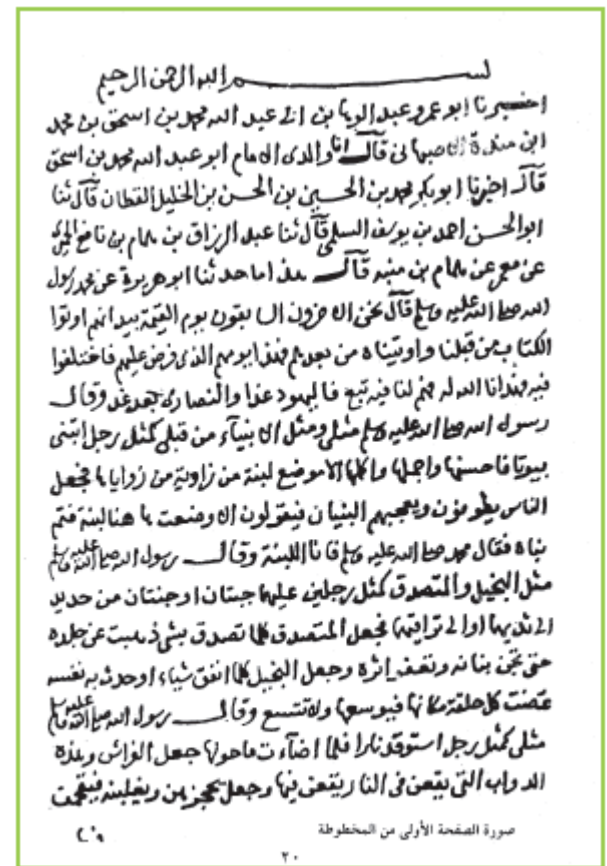 بسم الله الرحمن الرحيم
اخبرنا ابو عمرو عبد الوهاب بن ابى عبد الله محمد بن اسحق بن محمد
ابن مندة الاصبهانى قال انا والدى الامام ابو عبد الله محمد بن اسحق
قال اخبرنا ابو بكر محمد بن الحسين بن الحسن بن الخليل القطان قال ثنا
ابو الحسن احمد بن يوسف السلمى قال ثنا عبد الرزاق بن همام بن نافع الحميرى
عن معمر عن همام بن منبه قال هذا ما حدثنا ابو هريرة عن محمد رسول
الله صلى الله عليه وسلم قال نحن الاخرون السابقون يوم القيمة بيد انهم اوتوا
الكتاب من قبلنا واوتيناه من بعدهم فهذا يومهم الذى فرض عليهم فاختلفوا
فيه فهدانا الله له فهم لنا فيه تبع فاليهود غدا والنصارى بعد غد وقال
رسول الله صلى الله عليه وسلم مثلى ومثل الانبيآء من قبلى كمثل رجل ابتنى
بيوتا فاحسنها واجملها واكملها الا موضع لبنة من زاوية من زواياها فجعل
الناس يطوفون ويعجبهم البنيان فيقولون الا وضعت هاهنا لبنة فتم
بناه فقال محمد صلى الله عليه وسلم فانا اللبنة وقال رسول الله صلى الله عليه وسلم
مثل البخيل والمتصدق كمثل رجلين عليهما جبتان او جنتان من حديد
الى ثدييهما او الى تراقيهما فجعل المتصدق كلما تصدق بشئ ذهبت عن جلده
حتى تجن بنانه وتعفى اثره وجعل البخيل كلما انفق شيئا او حدث به نفسه
عضت كل حلقة مكانها فيوسعها ولا تتسع وقال رسول الله صلى الله عليه وسلم
مثلى كمثل رجل استوقد نارا فلما اضآءت ما حولها جعل الفراش وهذه
الدواب التى يقعن فى النار يقعن فيها وجعل يحجزهن ويغلبنه فيتقحمن
صورة الصفحة الأولى من المخطوطة
٢٠